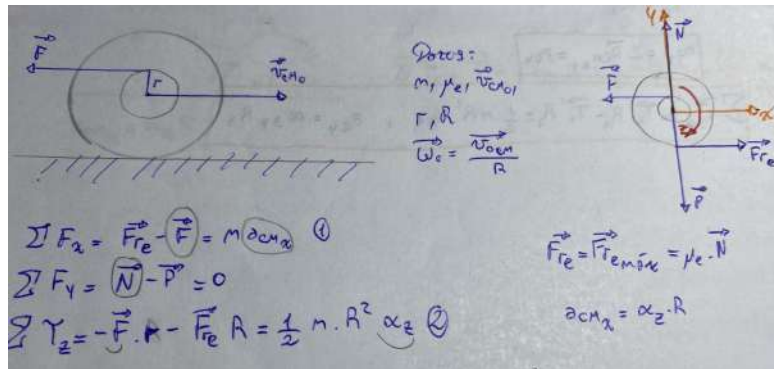 F⃗
r
v⃗cм₀
Datos:
m, μe, v⃗cм₀,
r, R
ω⃗₀ = v⃗₀cм / R
y
N⃗
F⃗
x
z
F⃗re
P⃗
∑ Fx = F⃗re - F⃗ = m acмx ①
∑ Fy = N⃗ - P⃗ = 0
∑ τz = -F⃗ . r - F⃗re R = 1/2 m . R² αz ②
F⃗re = F⃗re máx = μe . N⃗
acмx = αz . R